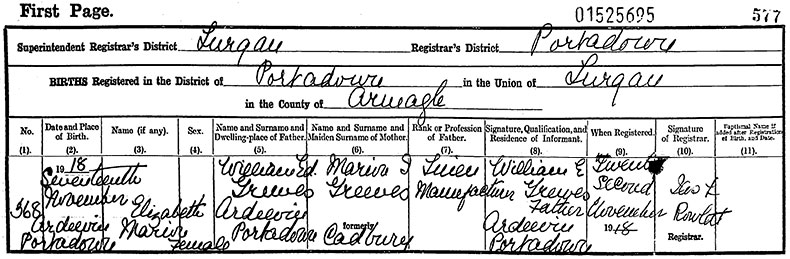 First Page. 01525695 577
Superintendent Registrar's District Lurgan Registrar's District Portadown
BIRTHS Registered in the District of Portadown in the Union of Lurgan
in the County of Armagh
No. Date and Place of Birth. Name (if any). Sex. Name and Surname and Dwelling-place of Father. Name and Surname and Maiden Surname of Mother. Rank or Profession of Father. Signature, Qualification, and Residence of Informant. When Registered. Signature of Registrar. Baptismal Name if added after Registration of Birth, and Date.
(1). (2). (3). (4). (5). (6). (7). (8). (9). (10). (11).
1918 William Ed. Marion I Linen William E Twenty
Seventeenth Greeves Greeves Manufacturer Greeves Second
November Elizabeth Ardeevin Father November
368 Ardeevin Marion Portadown formerly Ardeevin 1918 Registrar.
Portadown Female Cadbury Portadown